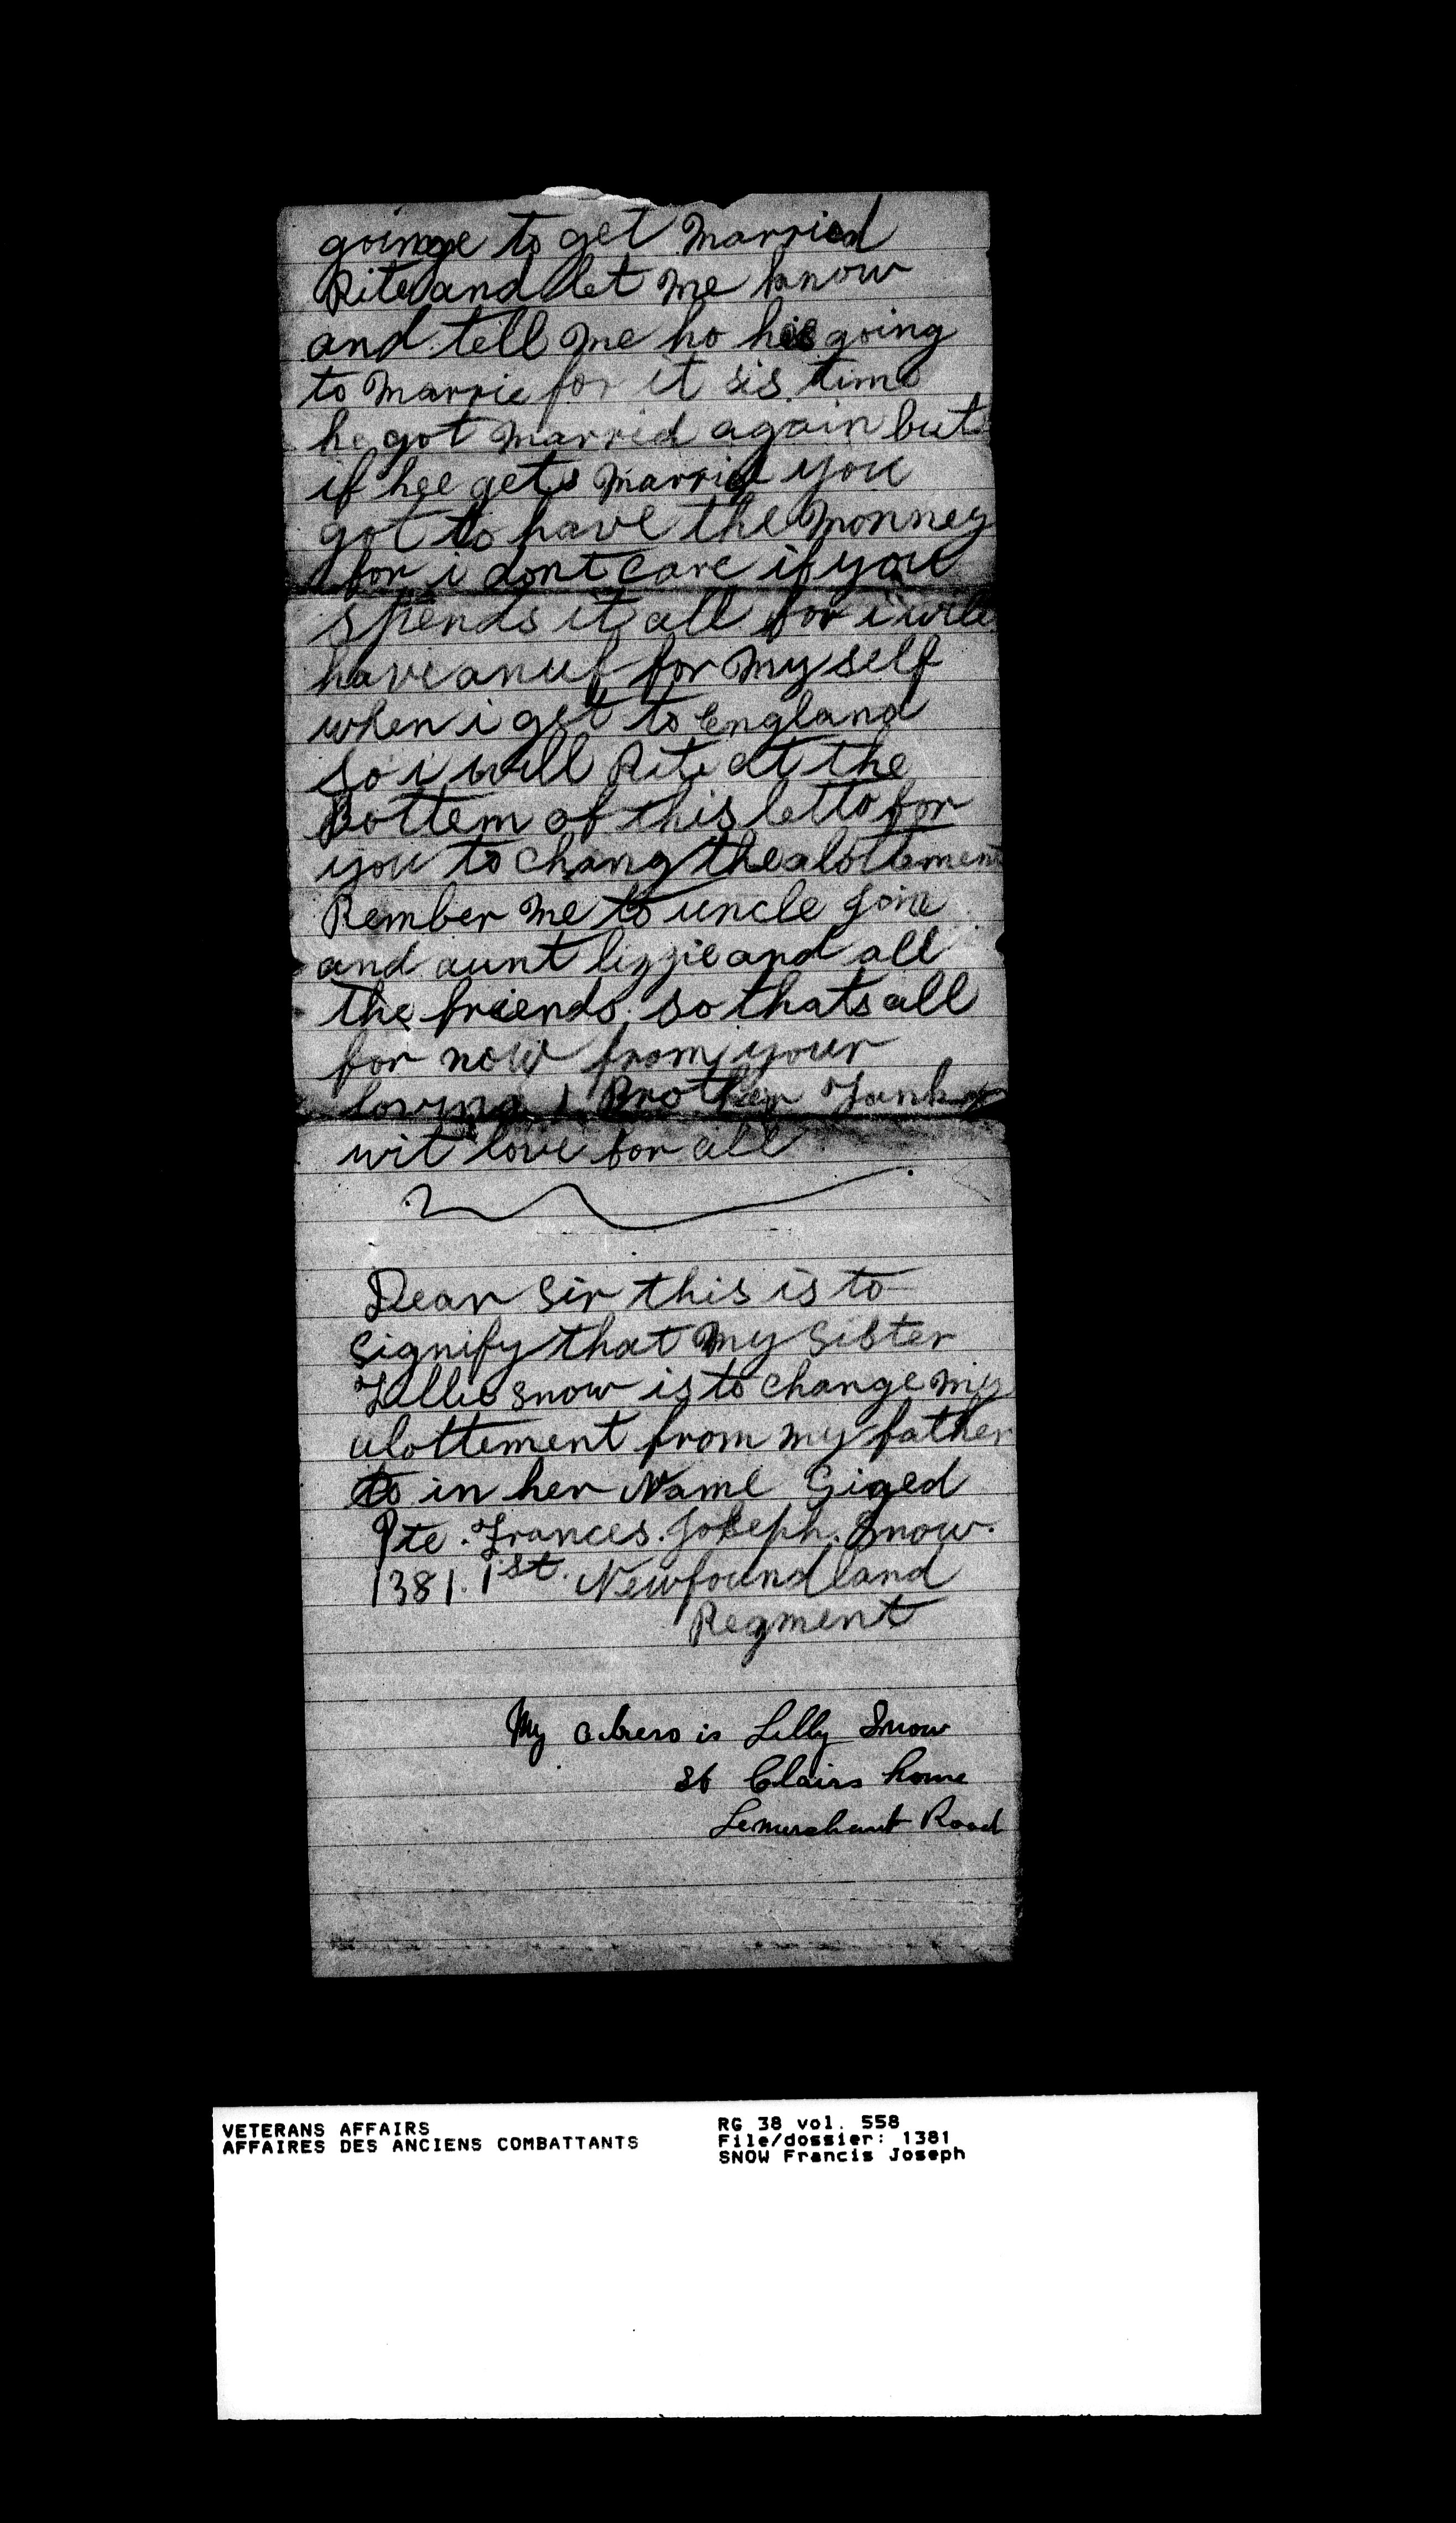 goinge to get Married
Rite and let me know
and tell me ho he is going
to Marrie for it sis time
he got Marrid again but
if hee gets Marrid you
got to have the Monney
for i dont care if you
spends it all for i will
have anuf for My self
when i get to England
so i will Rite at the
Bottem of this letto for
you to chang the alottement
Rember Me to uncle
and aunt lizzie and all
the friends so thats all
for now from your
loving Brother
wit love for all
Dear Sir this is to
Signify that My Sister
Lillie snow is to change my
alottement from my father
to in her Name Signed
Pte. Frances. Joseph. Snow.
1381. 1st. Newfoundland
Regment
My adress is Lilly Snow
St Clairs home
Lemerchant Road
VETERANS AFFAIRS
AFFAIRES DES ANCIENS COMBATTANTS
RG 38 vol. 558
File/dossier: 1381
SNOW Francis Joseph